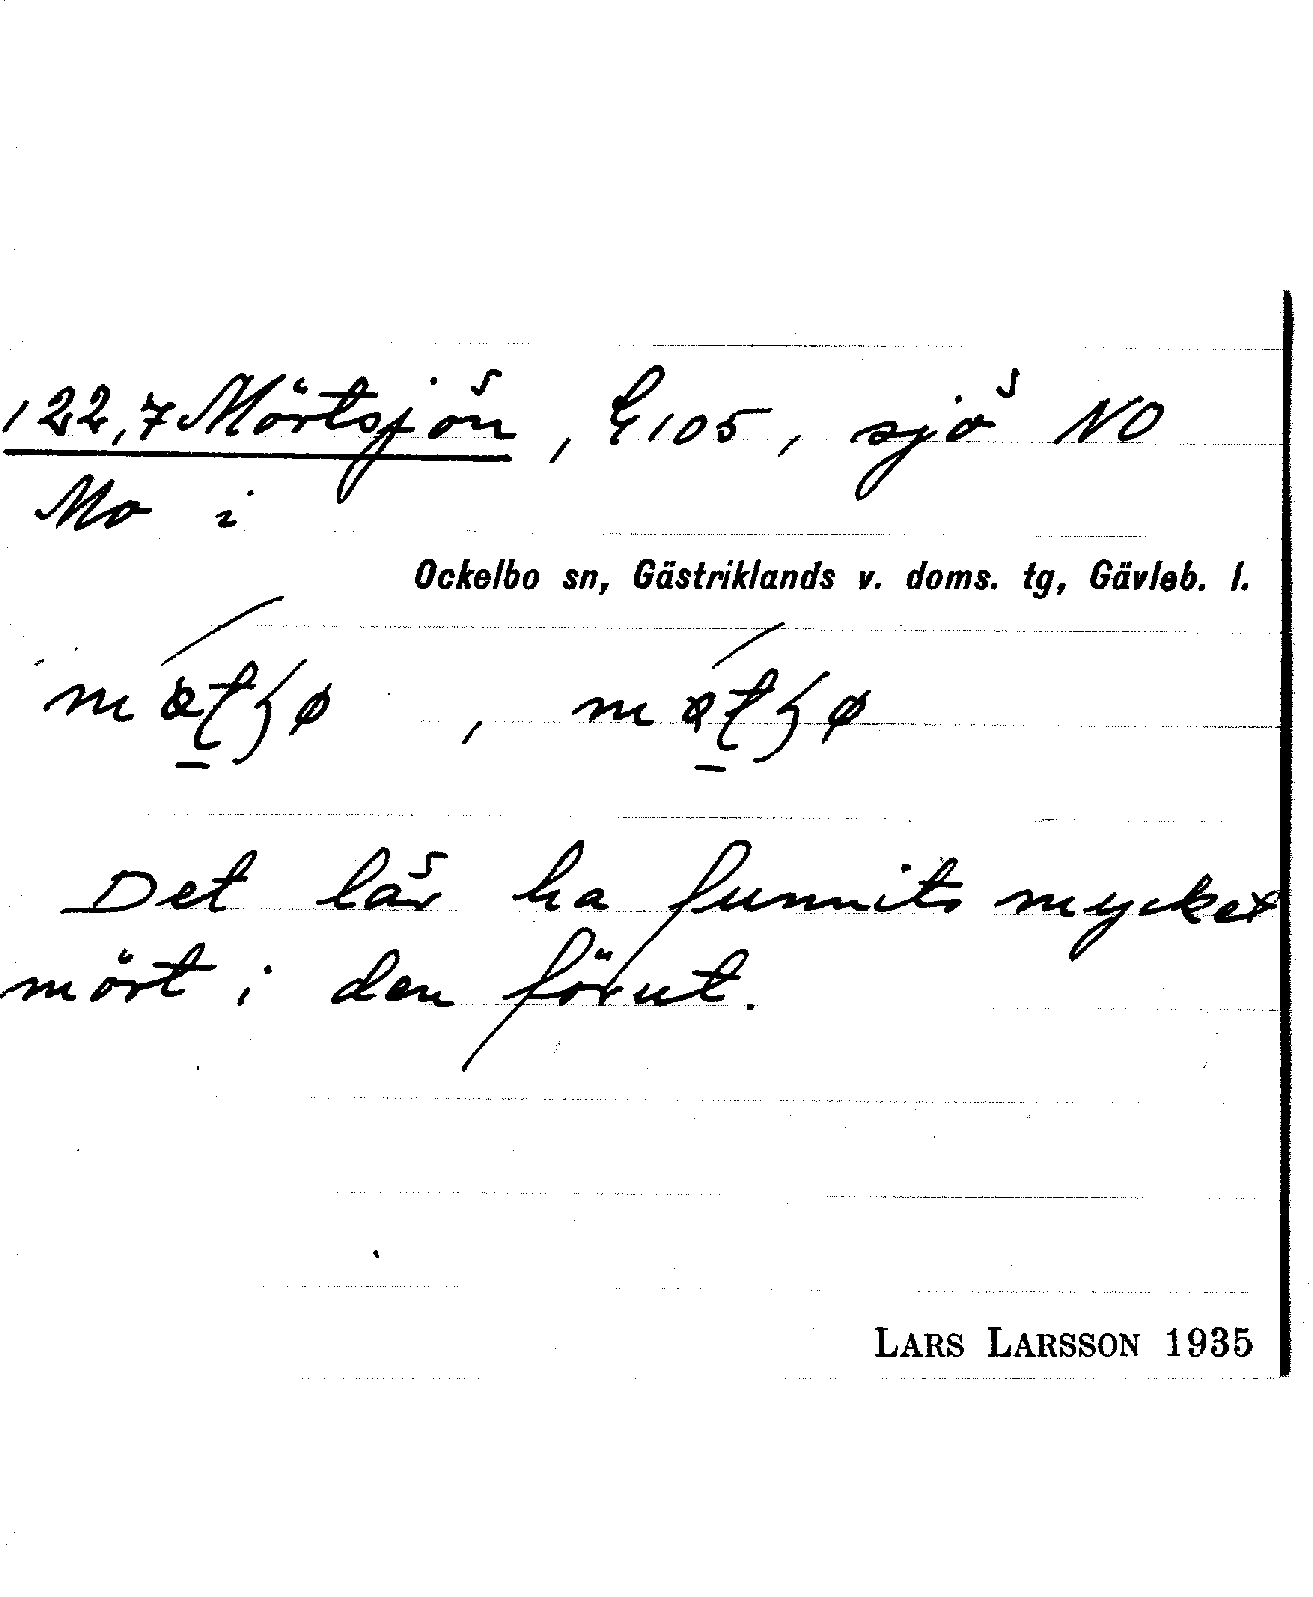 122,7 Mörtsjön, E 105, sjö NO
Mo i
Ockelbo sn, Gästriklands v. doms. tg, Gävleb. l.
Det lär ha funnits mycket
mört i den förut.
LARS LARSSON 1935